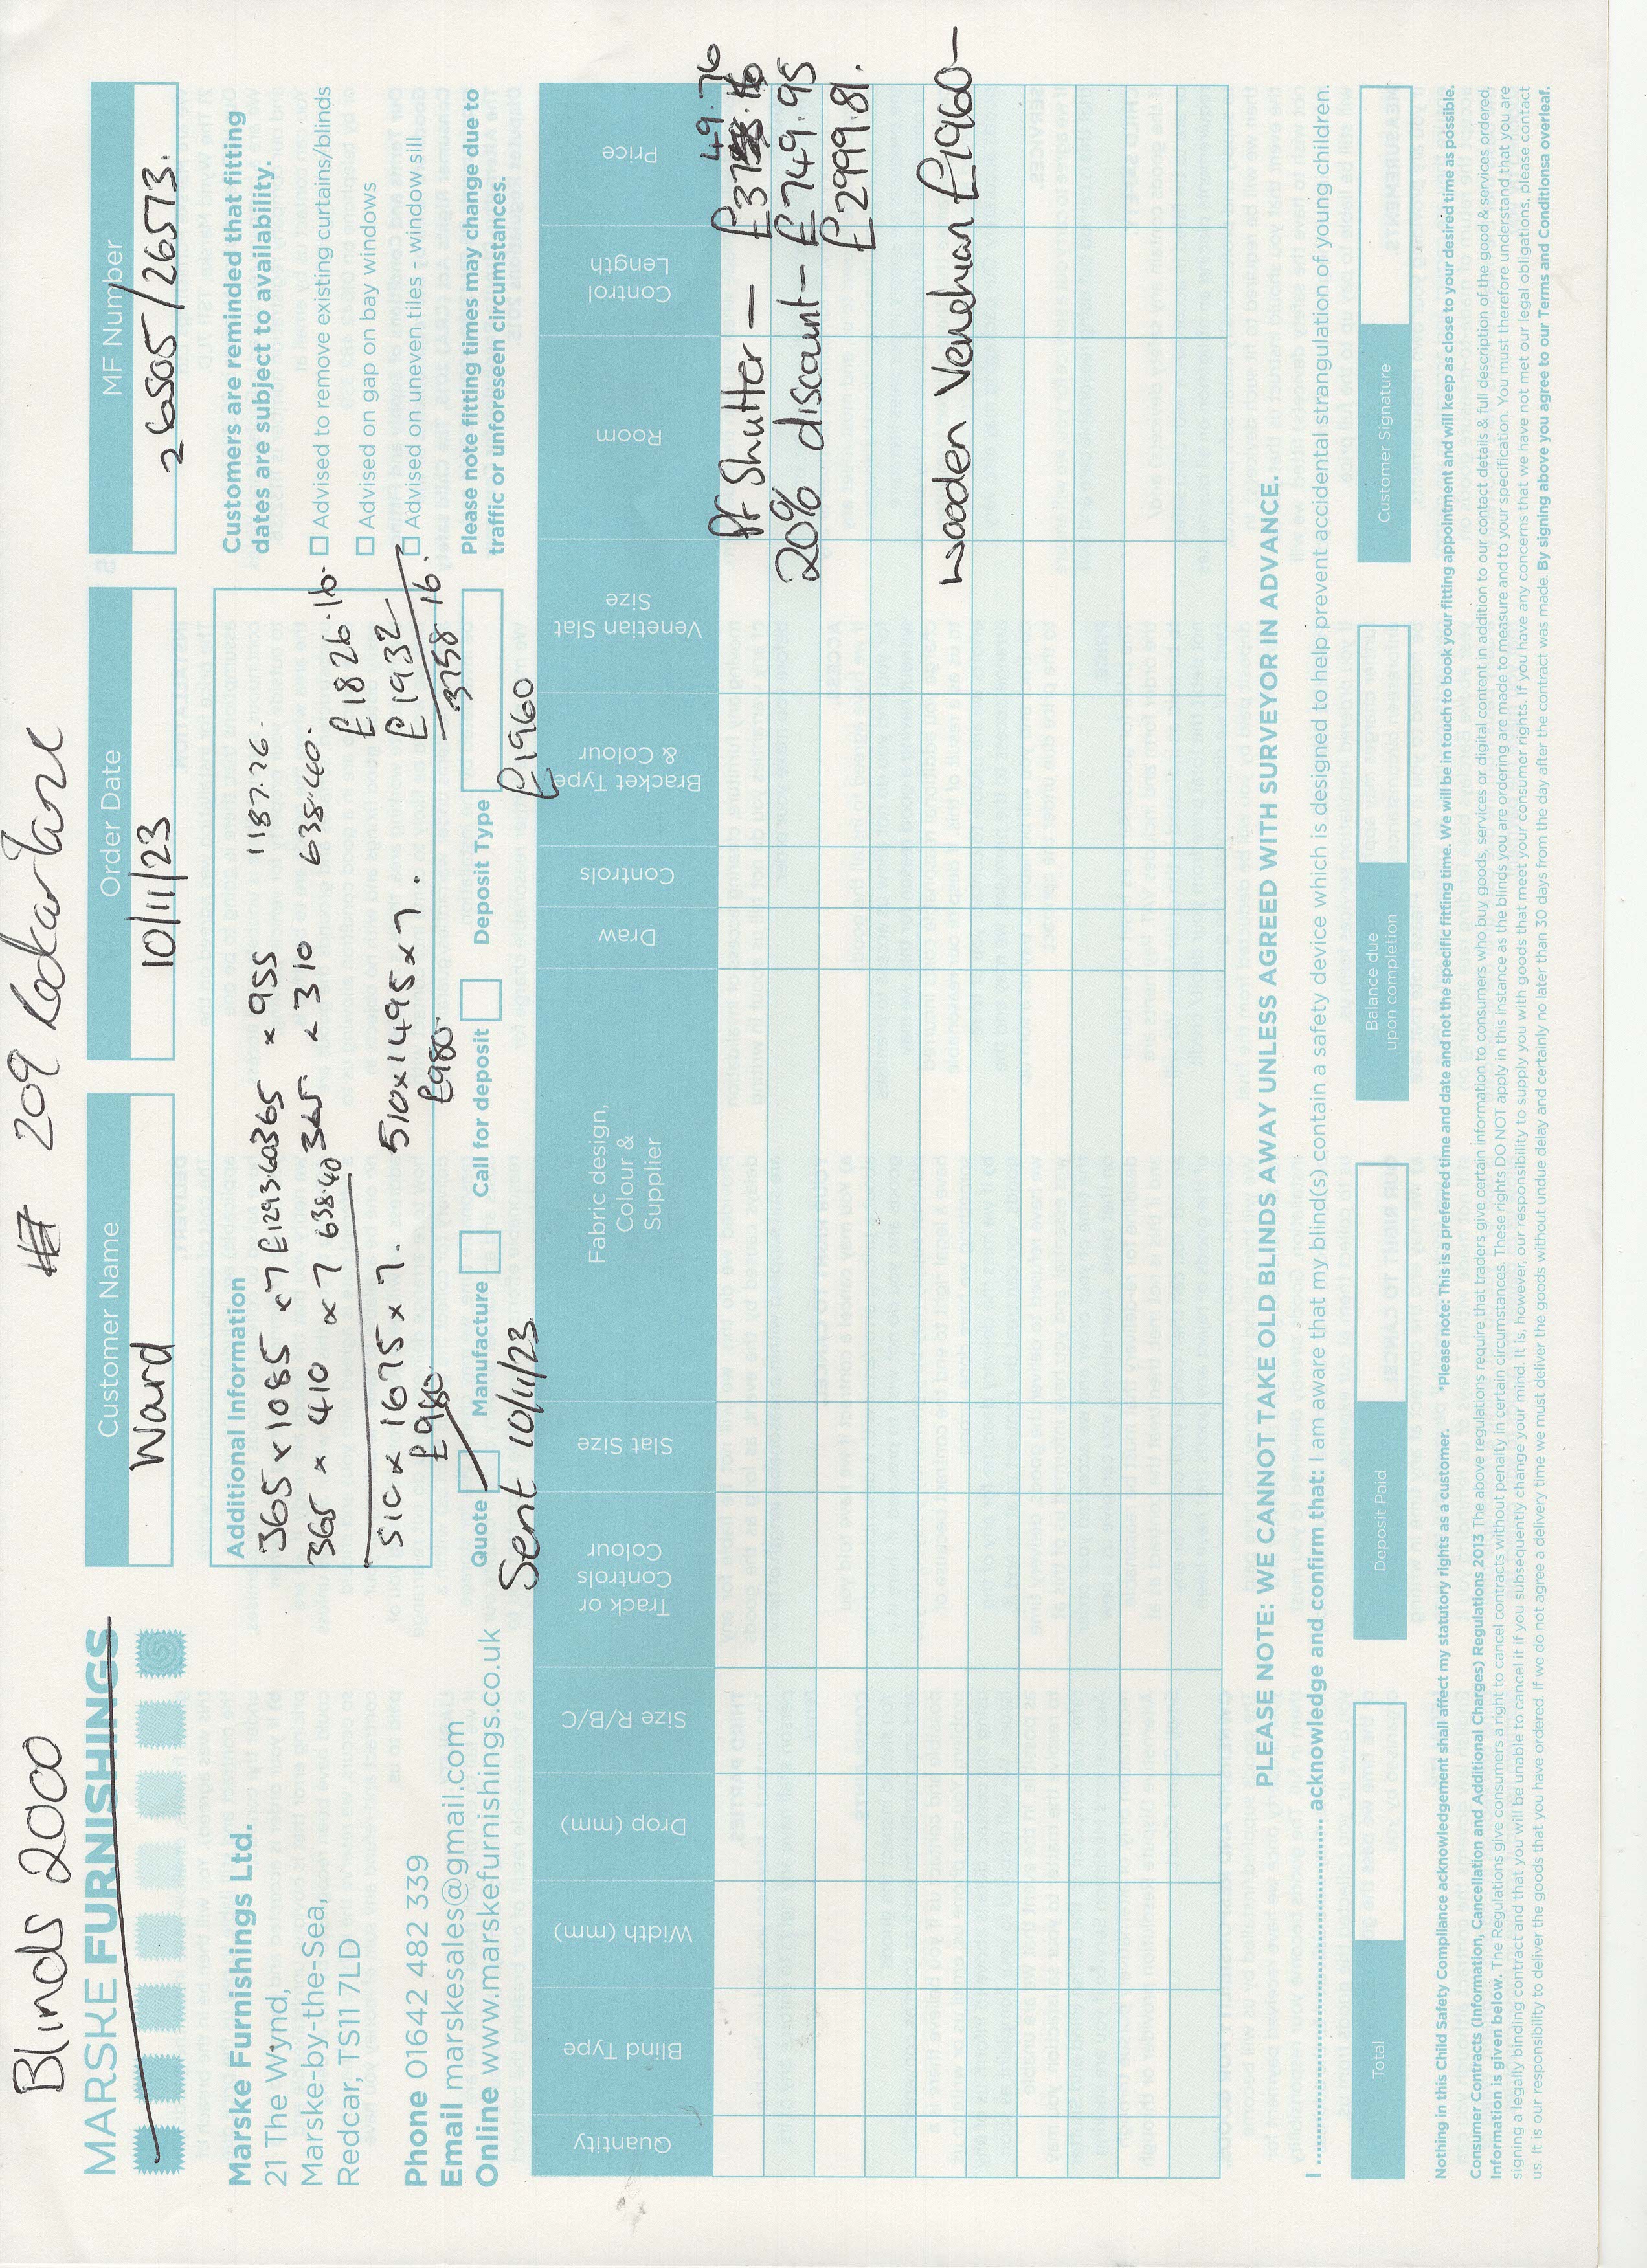 Blinds 2000
# 209 Redcar Lane
MARSKE FURNISHINGS
Customer Name
Ward
Order Date
10/11/23
MF Number
26505/26573.
Marske Furnishings Ltd.
21 The Wynd,
Marske-by-the-Sea,
Redcar, TS11 7LD
Phone 01642 482 339
Email marskesales@gmail.com
Online www.marskefurnishings.co.uk
Additional Information
365 x 1085 x 7 £1293.60 365 x 955 1187.76.
365 x 410 x 7 638.40 365 x 310 638.40.
£1826.16.
510 x 1675 x 7. 510 x 1495 x 7. £1932
£980 £980. 3758.16.
Quote
Manufacture
Call for deposit
Deposit Type
Sent 10/11/23
£1960
Customers are reminded that fitting
dates are subject to availability.
Advised to remove existing curtains/blinds
Advised on gap on bay windows
Advised on uneven tiles - window sill
Please note fitting times may change due to
traffic or unforeseen circumstances.
Quantity
Blind Type
Width (mm)
Drop (mm)
Size R/B/C
Track or
Controls
Colour
Slat Size
Fabric design,
Colour &
Supplier
Draw
Controls
Bracket Type
& Colour
Venetian Slat
Size
Room
Control
Length
Price
49.76
PF Shutter - £37
20% discount - £749.95
£2999.81.
Wooden Venetian £1960-
PLEASE NOTE: WE CANNOT TAKE OLD BLINDS AWAY UNLESS AGREED WITH SURVEYOR IN ADVANCE.
I .................... acknowledge and confirm that: I am aware that my blind(s) contain a safety device which is designed to help prevent accidental strangulation of young children.
Total
Deposit Paid
Balance due
upon completion
Customer Signature
Nothing in this Child Safety Compliance acknowledgement shall affect my statutory rights as a customer. *Please note: This is a preferred time and date and not the specific fitting time. We will be in touch to book your fitting appointment and will keep as close to your desired time as possible.
Consumer Contracts (Information, Cancellation and Additional Charges) Regulations 2013 The above regulations require that traders give certain information to consumers who buy goods, services or digital content in addition to our contact details & full description of the good & services ordered.
Information is given below. The Regulations give consumers a right to cancel contracts without penalty in certain circumstances. These rights DO NOT apply in this instance as the blinds you are ordering are made to measure and to your specification. You must therefore understand that you are
signing a legally binding contract and that you will be unable to cancel it if you subsequently change your mind. It is, however, our responsibility to supply you with goods that meet your consumer rights. If you have any concerns that we have not met our legal obligations, please contact
us. It is our responsibility to deliver the goods that you have ordered. If we do not agree a delivery time we must deliver the goods without undue delay and certainly no later than 30 days from the day after the contract was made. By signing above you agree to our Terms and Conditionsa overleaf.